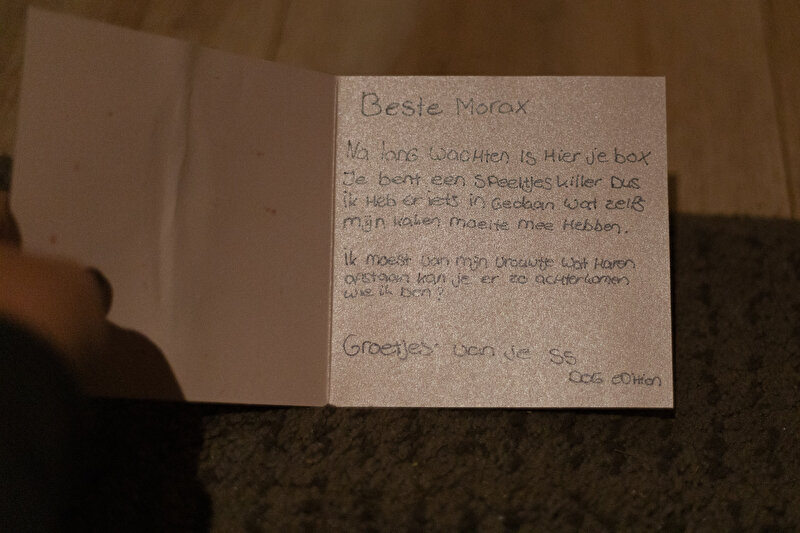 Beste Morax
Na lang wachten is Hier je box
Je bent een speeltjes killer Dus
ik Heb er iets in Gedaan wat zelfs
mijn kaken moeite mee Hebben.
Ik moest van mijn vrouwtje wat Haren
afstaan kan je er zo achterkomen
wie ik ben?
Groetjes van je SS
DOG edition